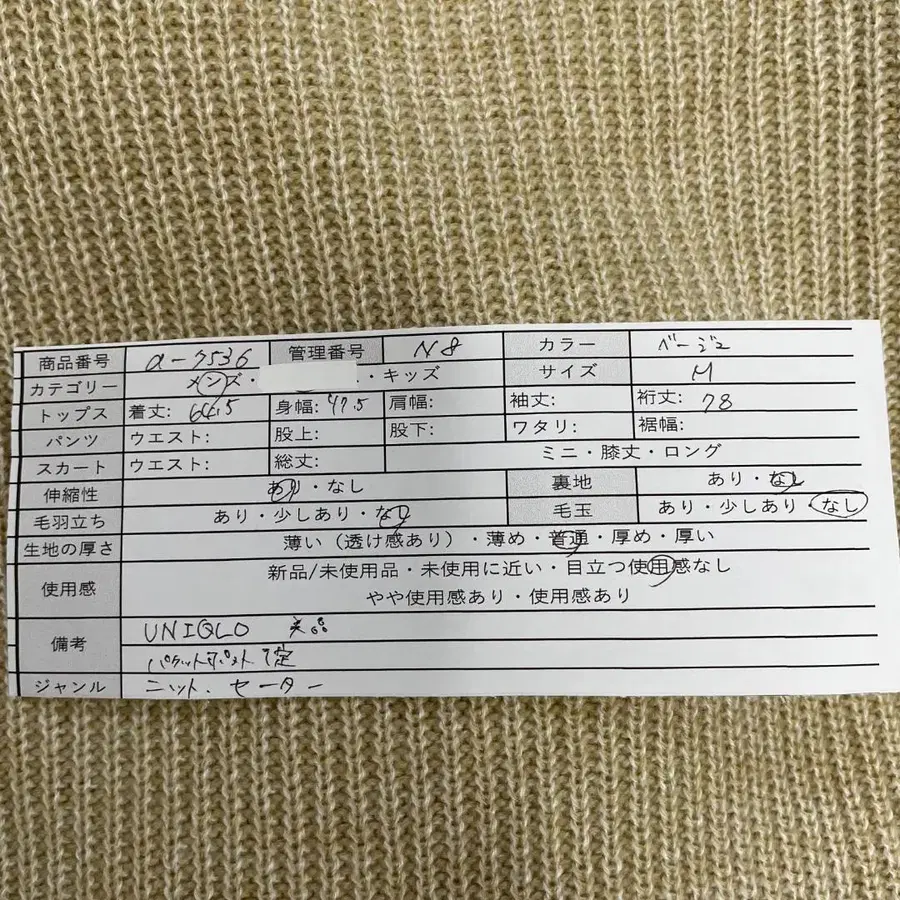 商品番号 a-7536 管理番号 N8 カラー ベージュ
カテゴリー メンズ・ ・キッズ サイズ M
トップス 着丈: 64.5 身幅: 47.5 肩幅: 袖丈: 裄丈: 78
パンツ ウエスト: 股上: 股下: ワタリ: 裾幅:
スカート ウエスト: 総丈: ミニ・膝丈・ロング
伸縮性 あり・なし 裏地 あり・なし
毛羽立ち あり・少しあり・なし 毛玉 あり・少しあり・なし
生地の厚さ 薄い（透け感あり）・薄め・普通・厚め・厚い
使用感 新品/未使用品・未使用に近い・目立つ使用感なし
やや使用感あり・使用感あり
備考 UNIQLO 美品
ジャンル ニット、セーター